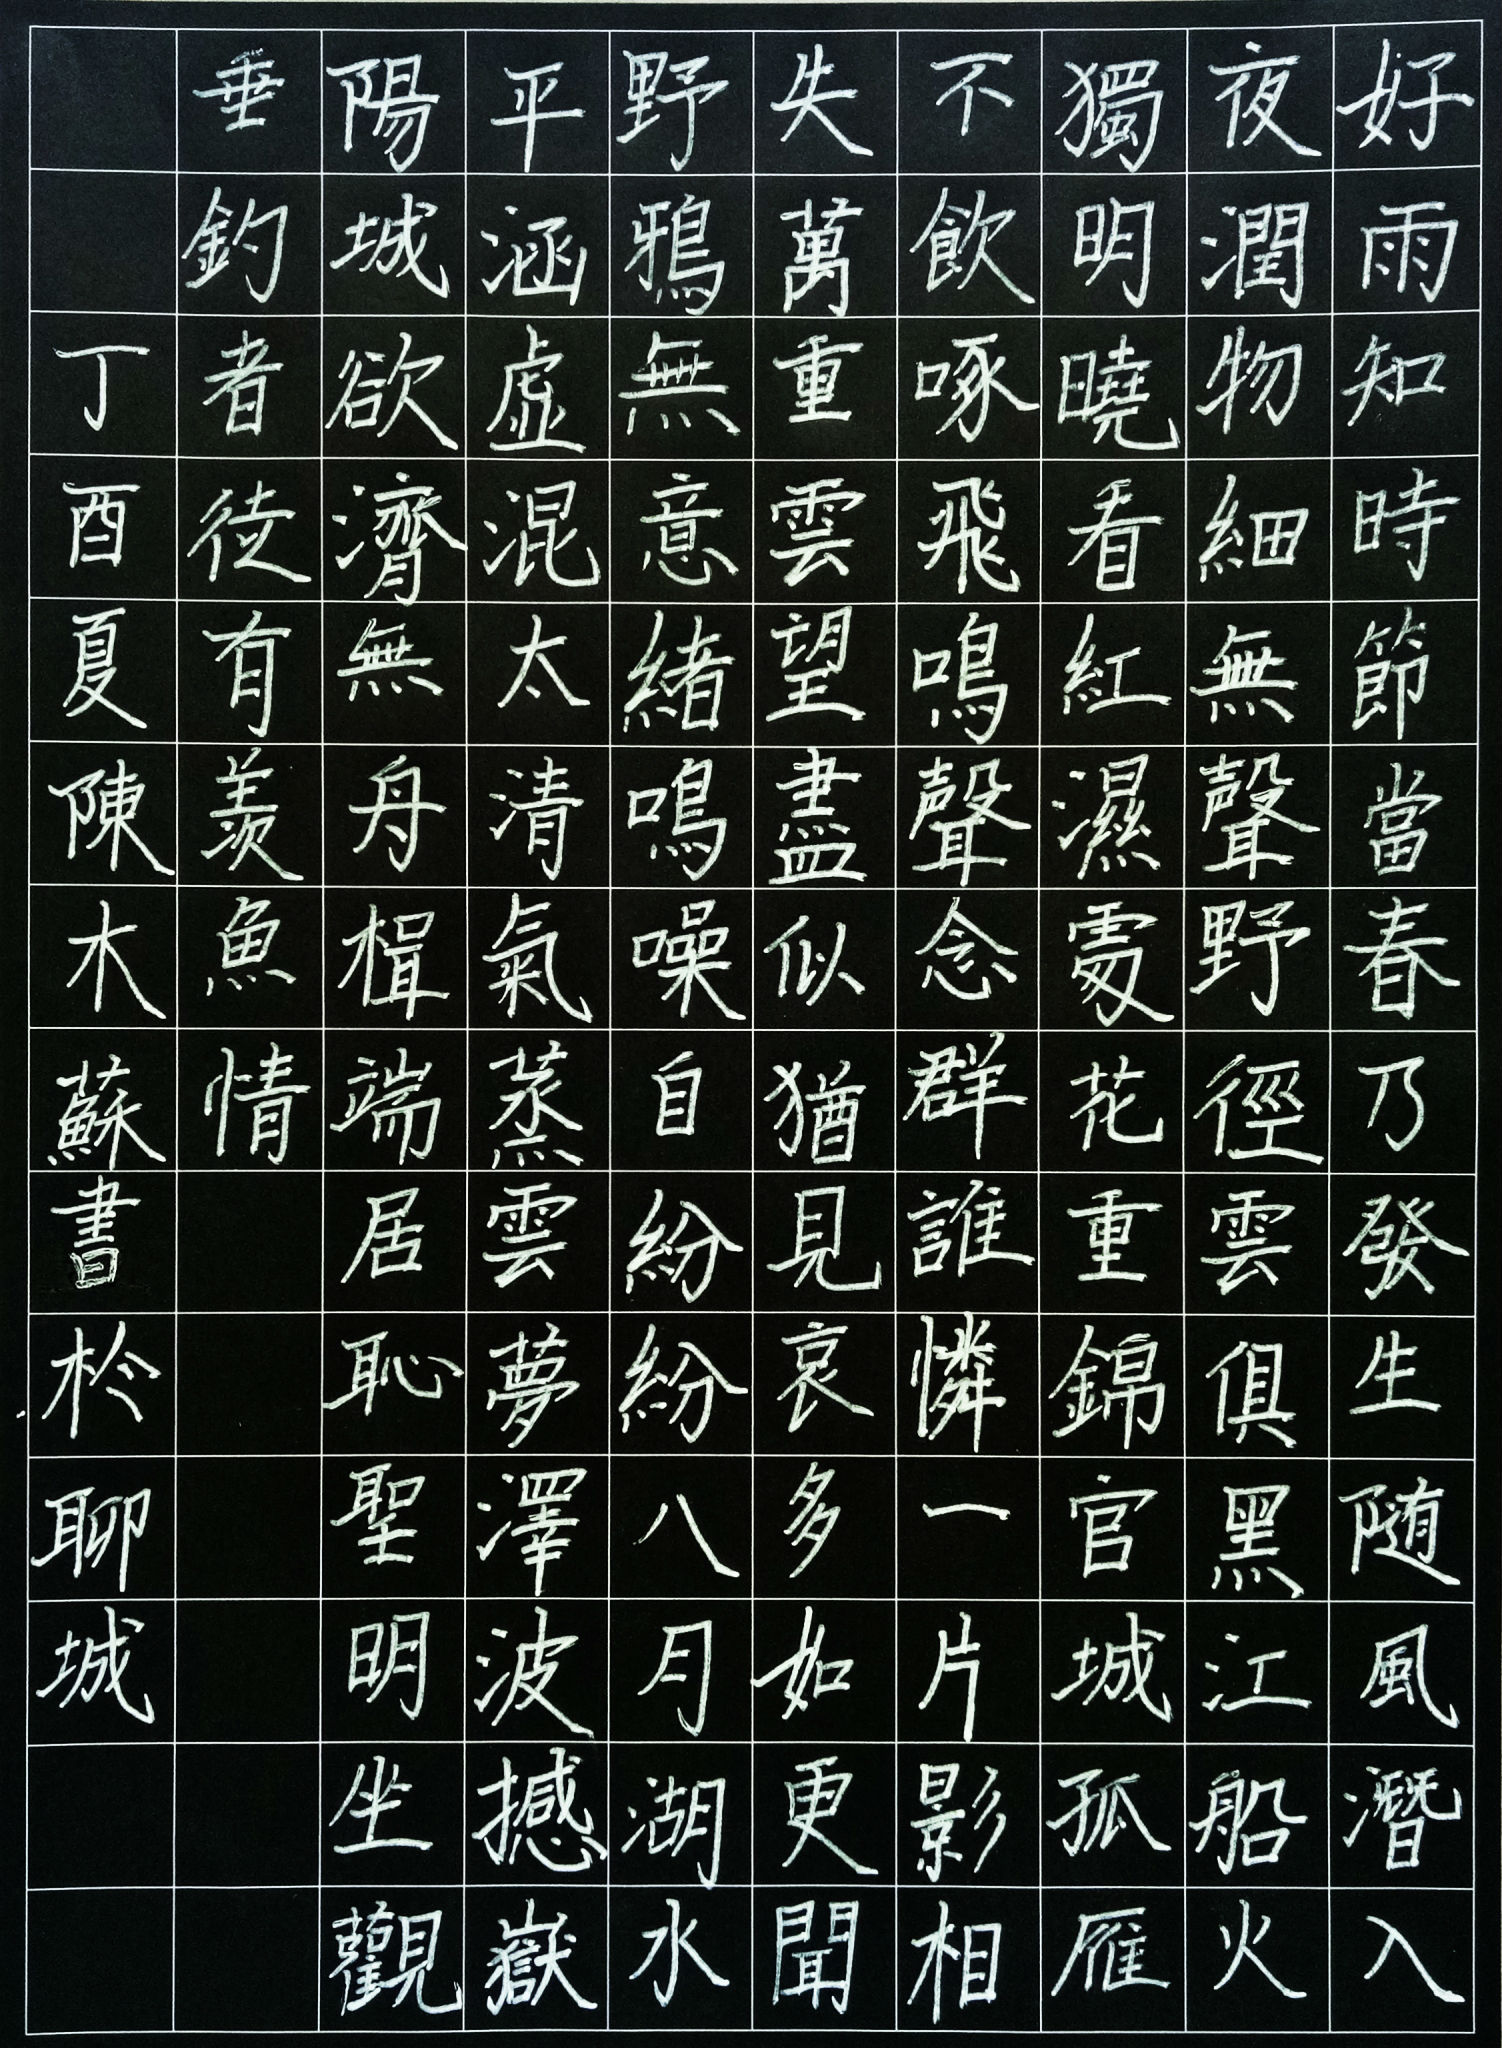 好雨知時節當春乃發生随風潛入
夜潤物細無聲野徑雲俱黑江船火
獨明曉看紅濕處花重錦官城孤雁
不飲啄飛鳴聲念群誰憐一片影相
失萬重雲望盡似猶見哀多如更聞
野鴉無意緒鳴噪自紛紛八月湖水
平涵虛混太清氣蒸雲夢澤波撼嶽
陽城欲濟無舟楫端居恥聖明坐觀
垂釣者徒有羨魚情
丁酉夏陳木蘇書於聊城